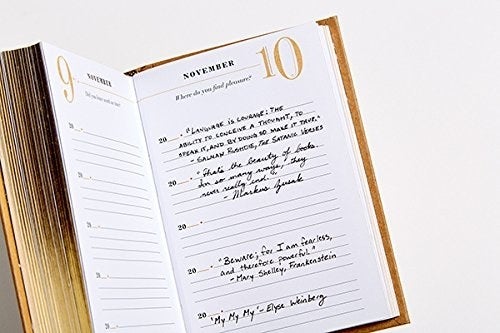 9
NOVEMBER
20
20
20
20
20
NOVEMBER 10
Where do you find pleasure?
20 "LANGUAGE IS COURAGE: THE
ABILITY TO CONCEIVE A THOUGHT, TO
SPEAK IT, AND BY DOING SO MAKE IT TRUE."
- SALMAN RUSHDIE, THE SATANIC VERSES
20 "That's the beauty of books.
In so many ways, they
never really end."
- Markus Zusak
20
20 "Beware; for I am fearless,
and therefore powerful."
- Mary Shelley, Frankenstein
20 "My My My" - Elyse Weinberg